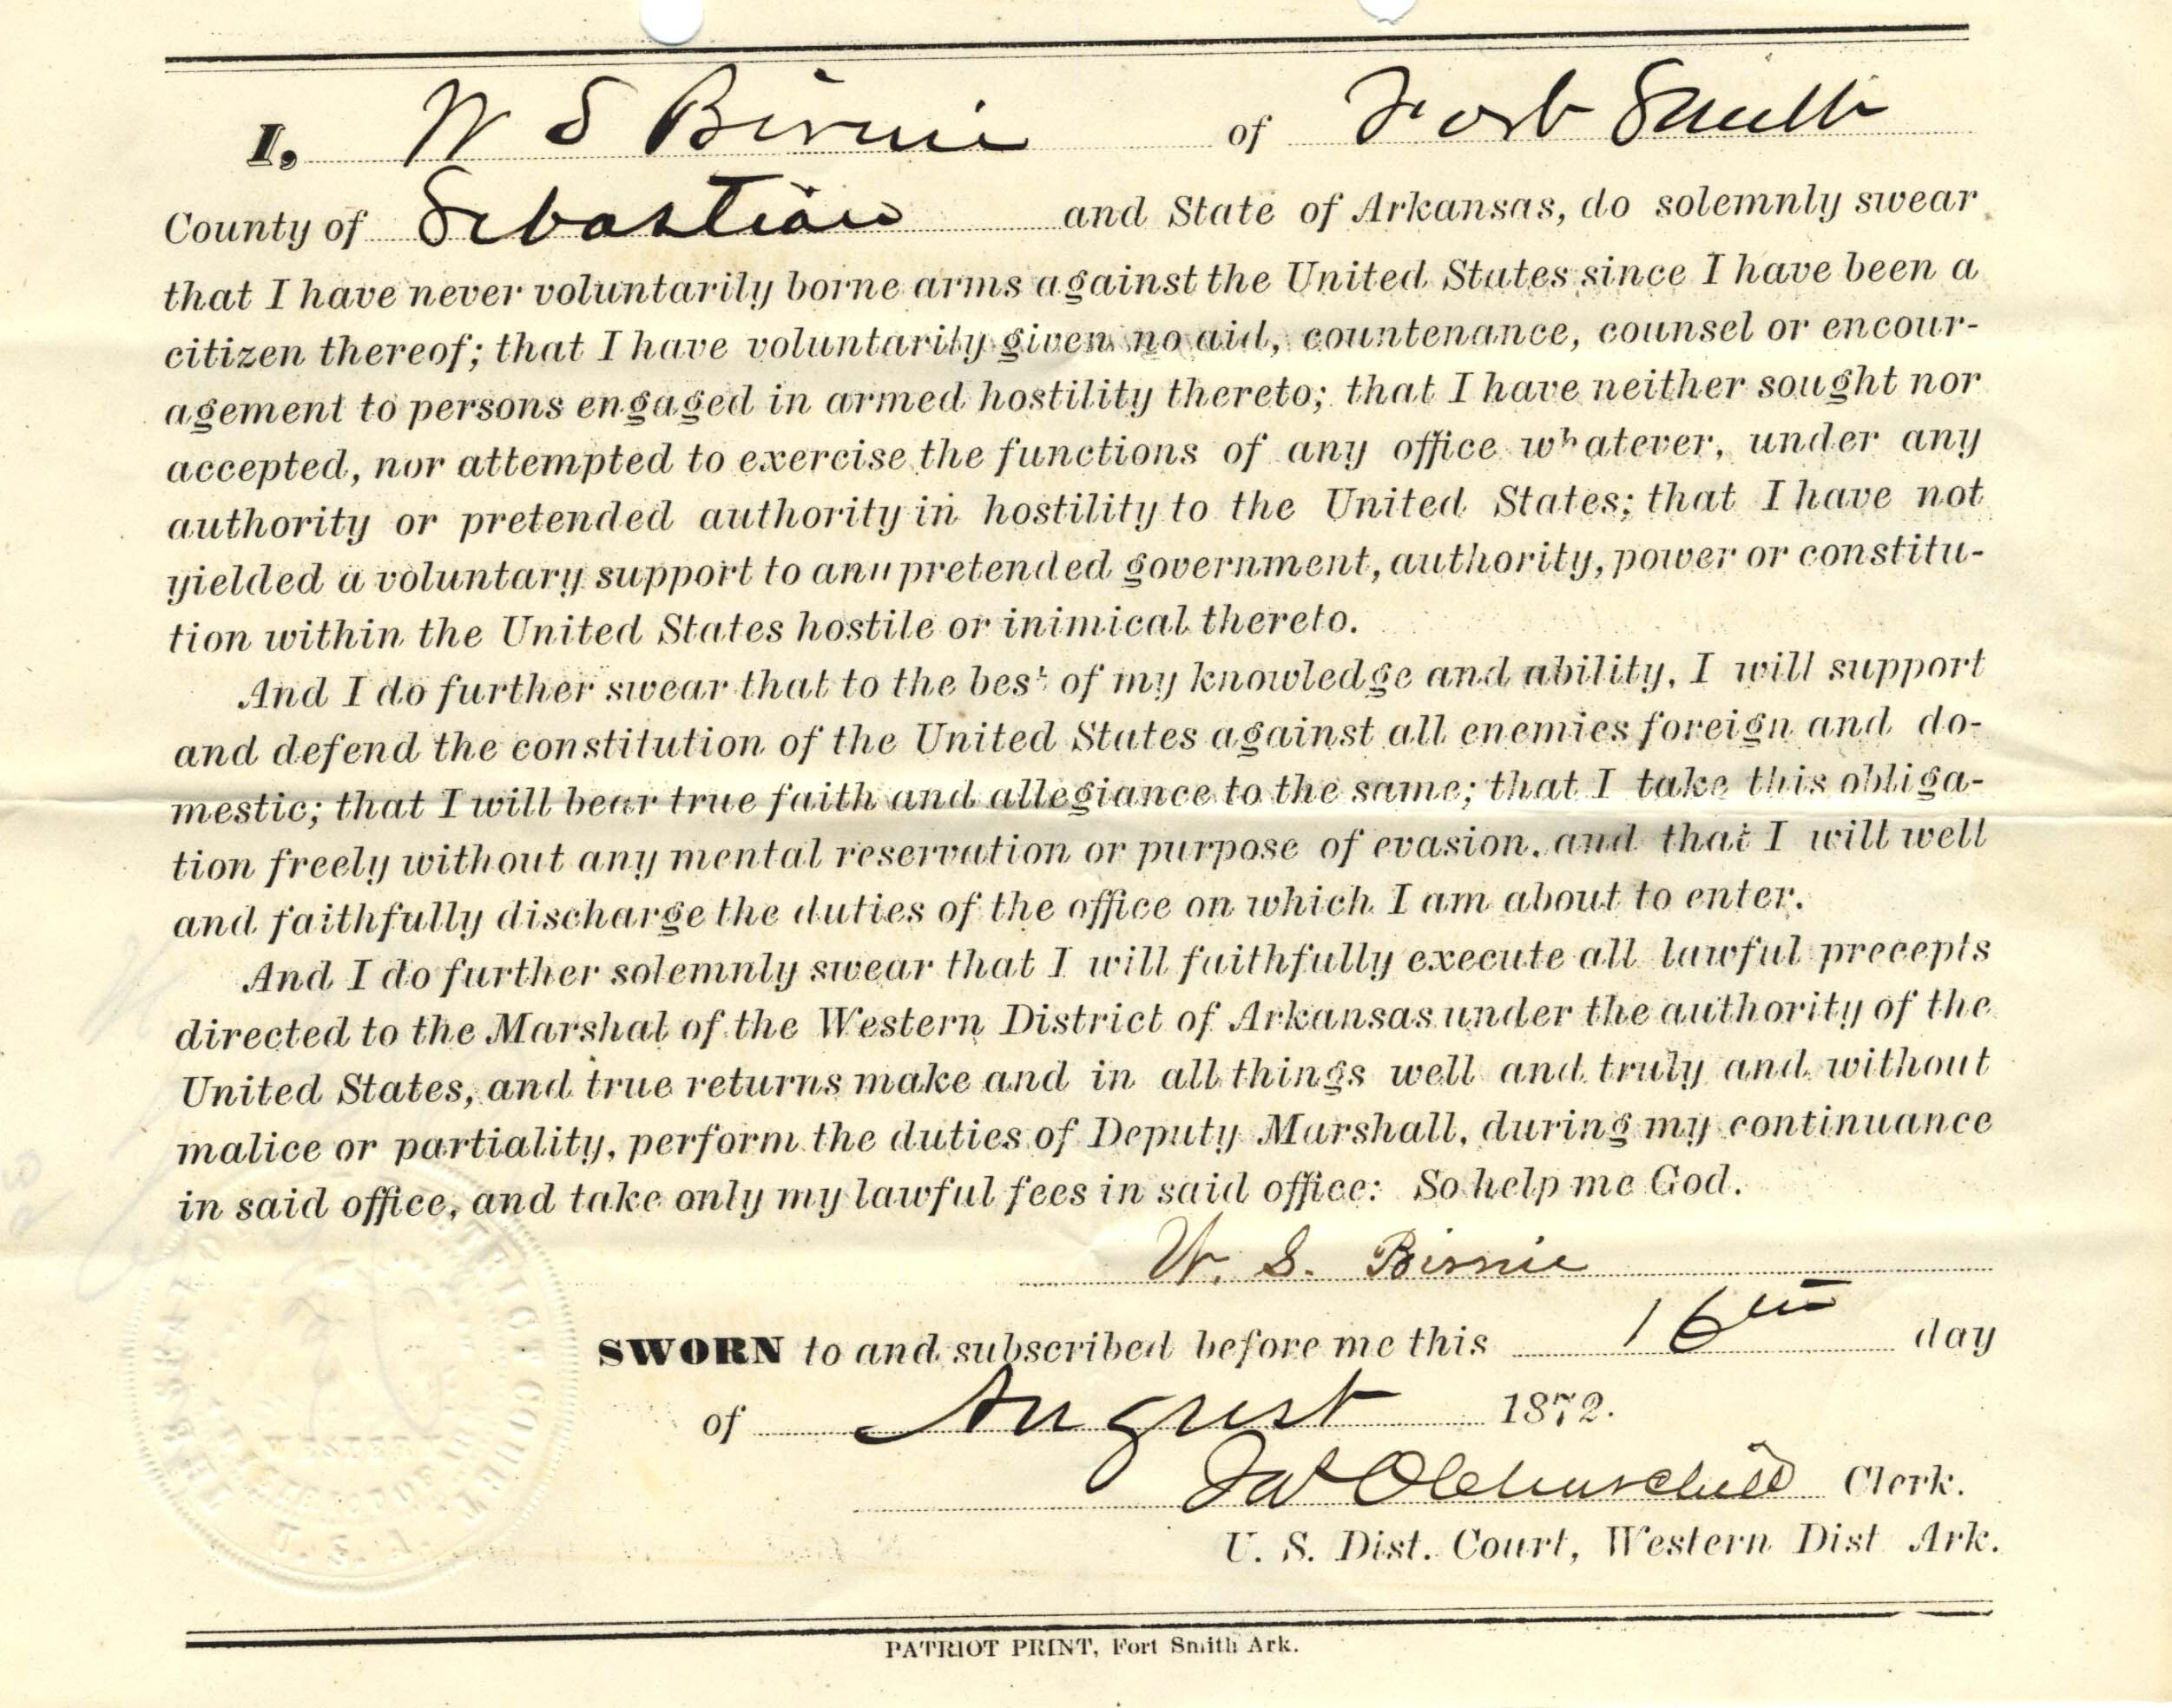 I, W S Birnie of Fort Smith
County of Sebastian and State of Arkansas, do solemnly swear
that I have never voluntarily borne arms against the United States since I have been a
citizen thereof; that I have voluntarily given no aid, countenance, counsel or encour-
agement to persons engaged in armed hostility thereto; that I have neither sought nor
accepted, nor attempted to exercise the functions of any office whatever, under any
authority or pretended authority in hostility to the United States; that I have not
yielded a voluntary support to any pretended government, authority, power or constitu-
tion within the United States hostile or inimical thereto.
And I do further swear that to the best of my knowledge and ability, I will support
and defend the constitution of the United States against all enemies foreign and do-
mestic; that I will bear true faith and allegiance to the same; that I take this obliga-
tion freely without any mental reservation or purpose of evasion, and that I will well
and faithfully discharge the duties of the office on which I am about to enter.
And I do further solemnly swear that I will faithfully execute all lawful precepts
directed to the Marshal of the Western District of Arkansas under the authority of the
United States, and true returns make and in all things well and truly and without
malice or partiality, perform the duties of Deputy Marshall, during my continuance
in said office, and take only my lawful fees in said office: So help me God.
W. S. Birnie
SWORN to and subscribed before me this 16th day
of August 1872.
Churchill Clerk.
U. S. Dist. Court, Western Dist Ark.
U. S. A.
PATRIOT PRINT, Fort Smith Ark.